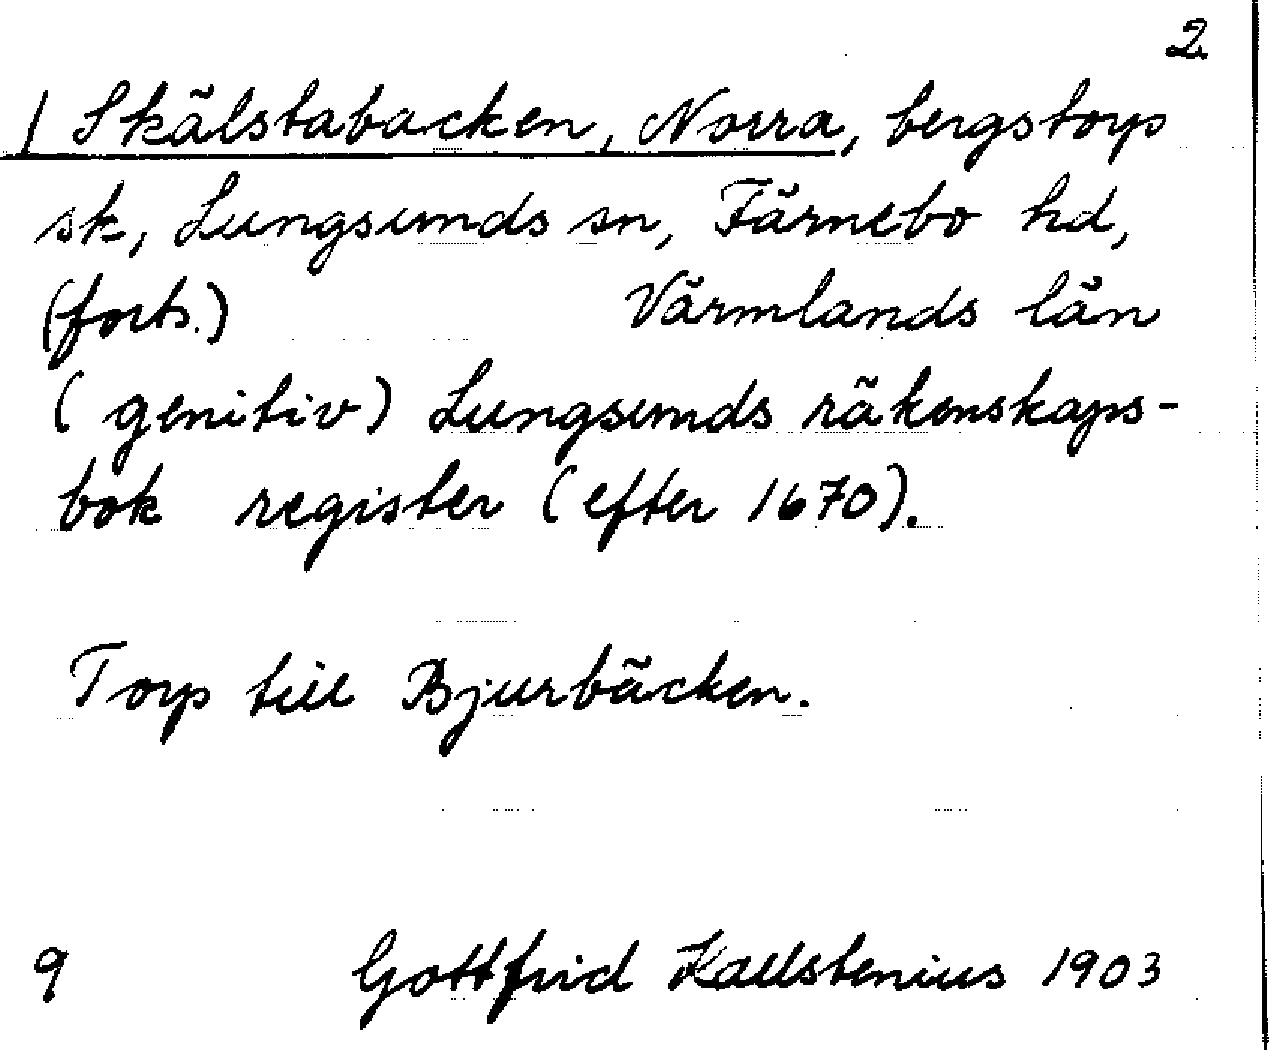 2
/ Skälstabacken, Norra, bergstorp
sk, Lungsunds sn, Färnebo hd,
(forts.) Värmlands län
(genitiv) Lungsunds räkenskaps-
bok register (efter 1670).
Torp till Bjurbäcken.
9 Gottfrid Kallstenius 1903